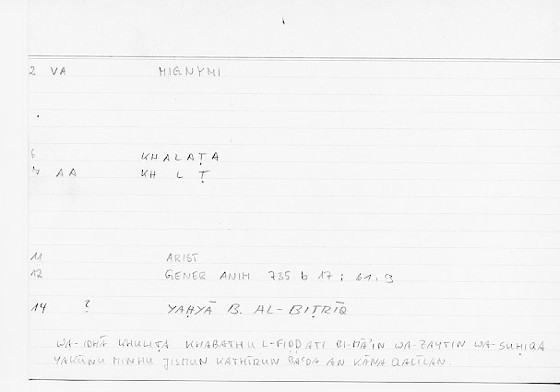 2 VA MIGNYMI
6 KHALAṬA
7 AA KH L Ṭ
11 ARIST
12 GENER ANIM 735 b 17 ; 61.9
14 ? YAḤYĀ B. AL-BIṬRĪQ
WA-IDHĀ KHULIṬA KHABATHU L-FIḌḌATI BI-MĀ'IN WA-ZAYTIN WA-SUḤIQA
YAKŪNU MINHU JISMUN KATHĪRUN BAʿDA AN KĀNA QALĪLAN.